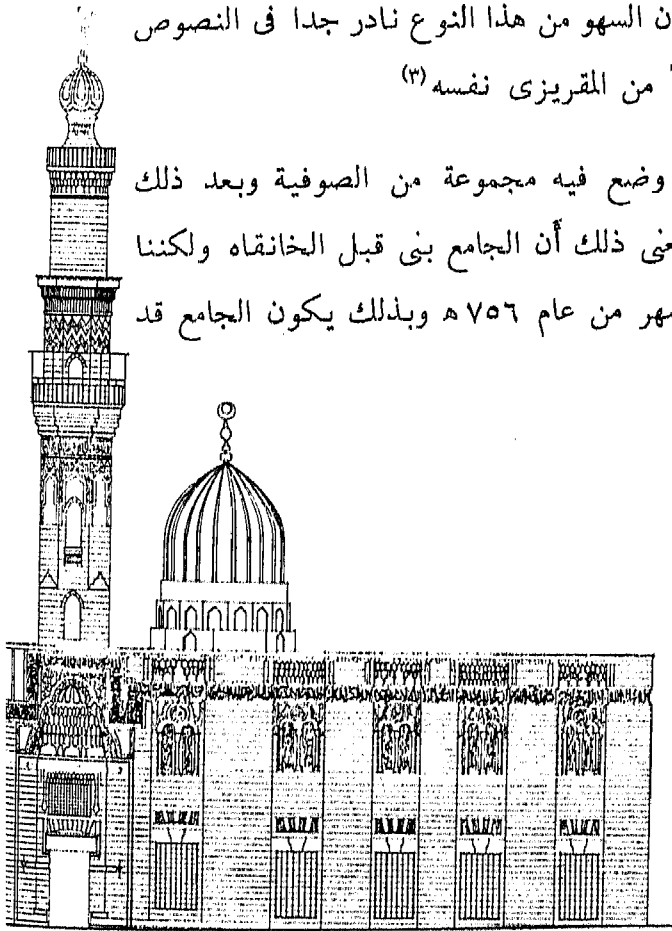 ن السهو من هذا النوع نادر جدا فى النصوص
من المقريزى نفسه (٣)
وضع فيه مجموعة من الصوفية وبعد ذلك
عنى ذلك أن الجامع بنى قبل الخانقاه ولكننا
هر من عام ٧٥٦ ه وبذلك يكون الجامع قد